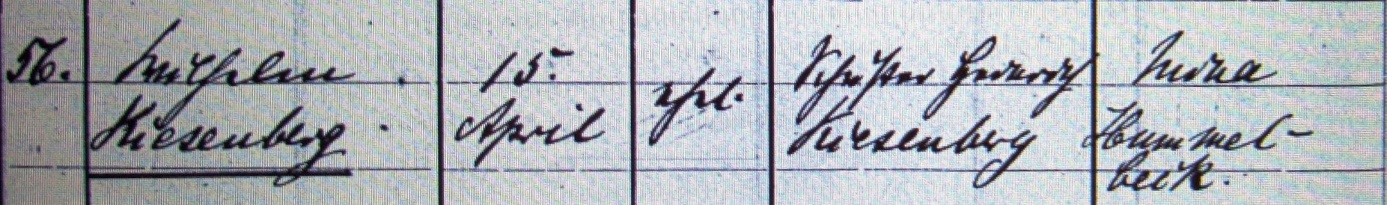 56.
Wilhelm
Kiesenberg
15.
April
ehel.
Schuster Heinrich
Kiesenberg
Mina
Hummel-
beik.